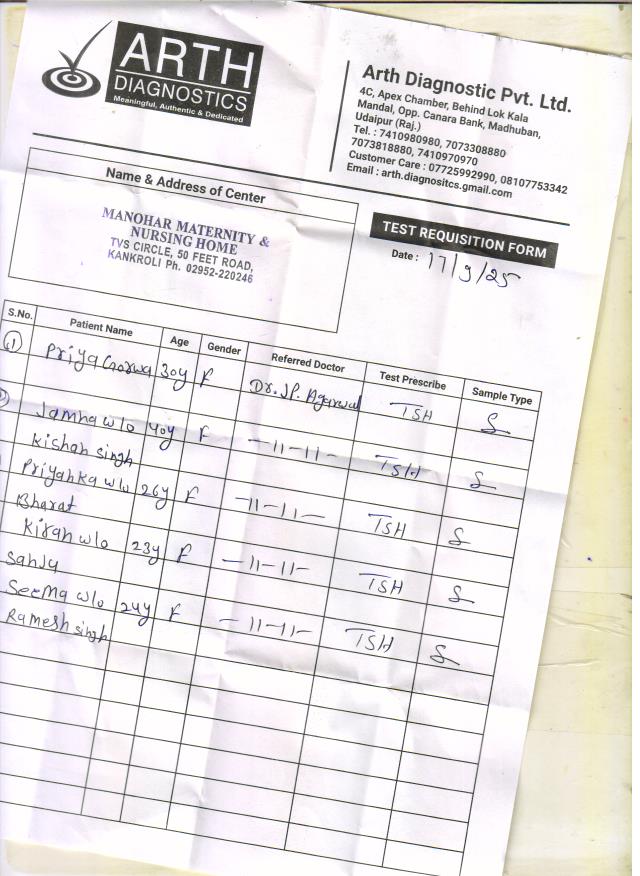 ARTH
DIAGNOSTICS
Meaningful, Authentic & Dedicated
Arth Diagnostic Pvt. Ltd.
4C, Apex Chamber, Behind Lok Kala
Mandal, Opp. Canara Bank, Madhuban,
Udaipur (Raj.)
Tel. : 7410980980, 7073308880
7073818880, 7410970970
Customer Care : 07725992990, 08107753342
Email : arth.diagnositcs.gmail.com
Name & Address of Center
MANOHAR MATERNITY &
NURSING HOME
TVS CIRCLE, 50 FEET ROAD,
KANKROLI Ph. 02952-220246
TEST REQUISITION FORM
Date : 17/9/25
S.No. Patient Name Age Gender Referred Doctor Test Prescribe Sample Type
(1) Priya 30y F Dr. J.P. Agarwal TSH S
Jamna w/o 40y F -11-11- TSH S
Kishan singh
Priyanka w/o 26y F -11-11- TSH S
Bharat
Kiran w/o 23y F -11-11- TSH S
Seema w/o 24y F -11-11- TSH S
Ramesh singh